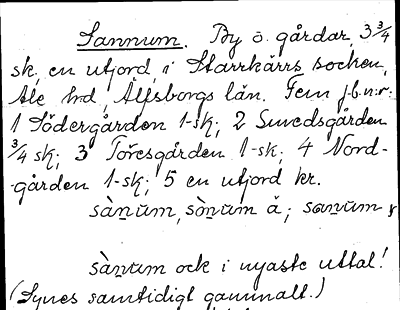 Sannum. By o. gårdar, 3 3/4
sk, en utjord, i Starrkärrs socken,
Ale hd, Älfsborgs län. Fem j.b.n:r:
1 Södergården 1-sk; 2 Smedsgården
3/4 sk; 3 Toresgården 1-sk; 4 Nord-
-gården 1-sk; 5 en utjord kr.
sànum, sònum å; sanum
sànum ock i nyaste uttal!
(Synes samtidigt gammalt.)